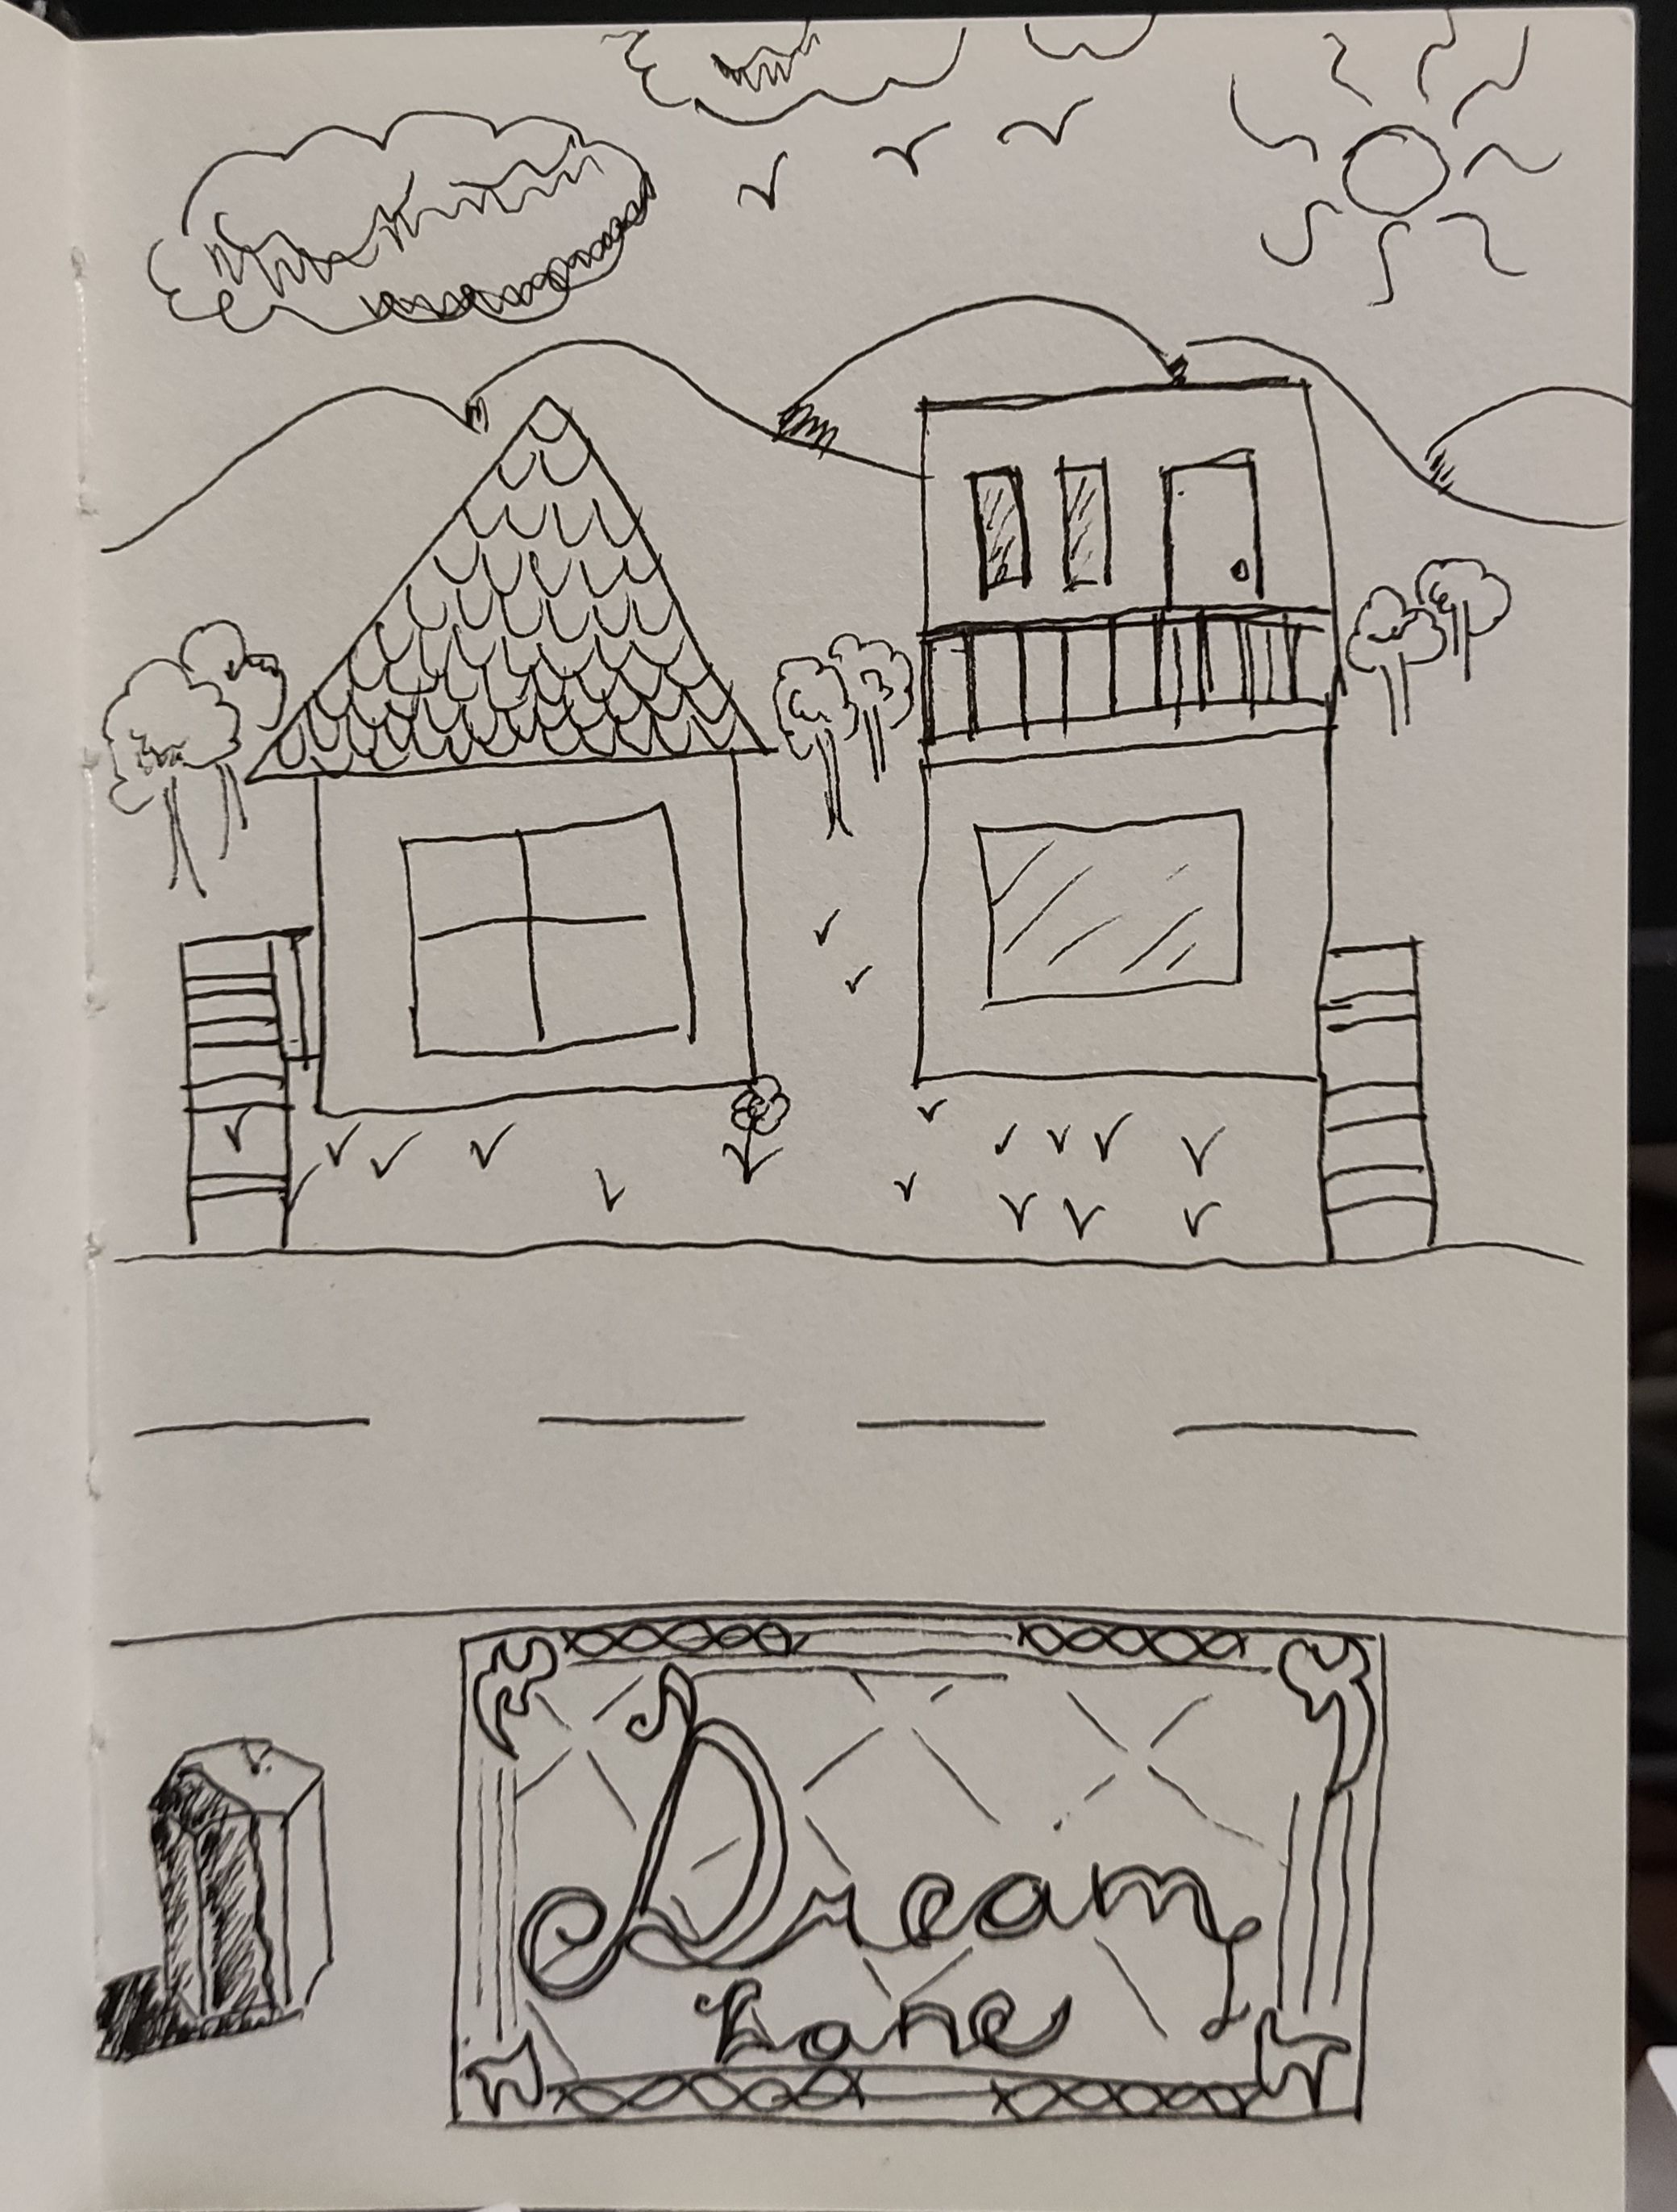 Dream
Lane